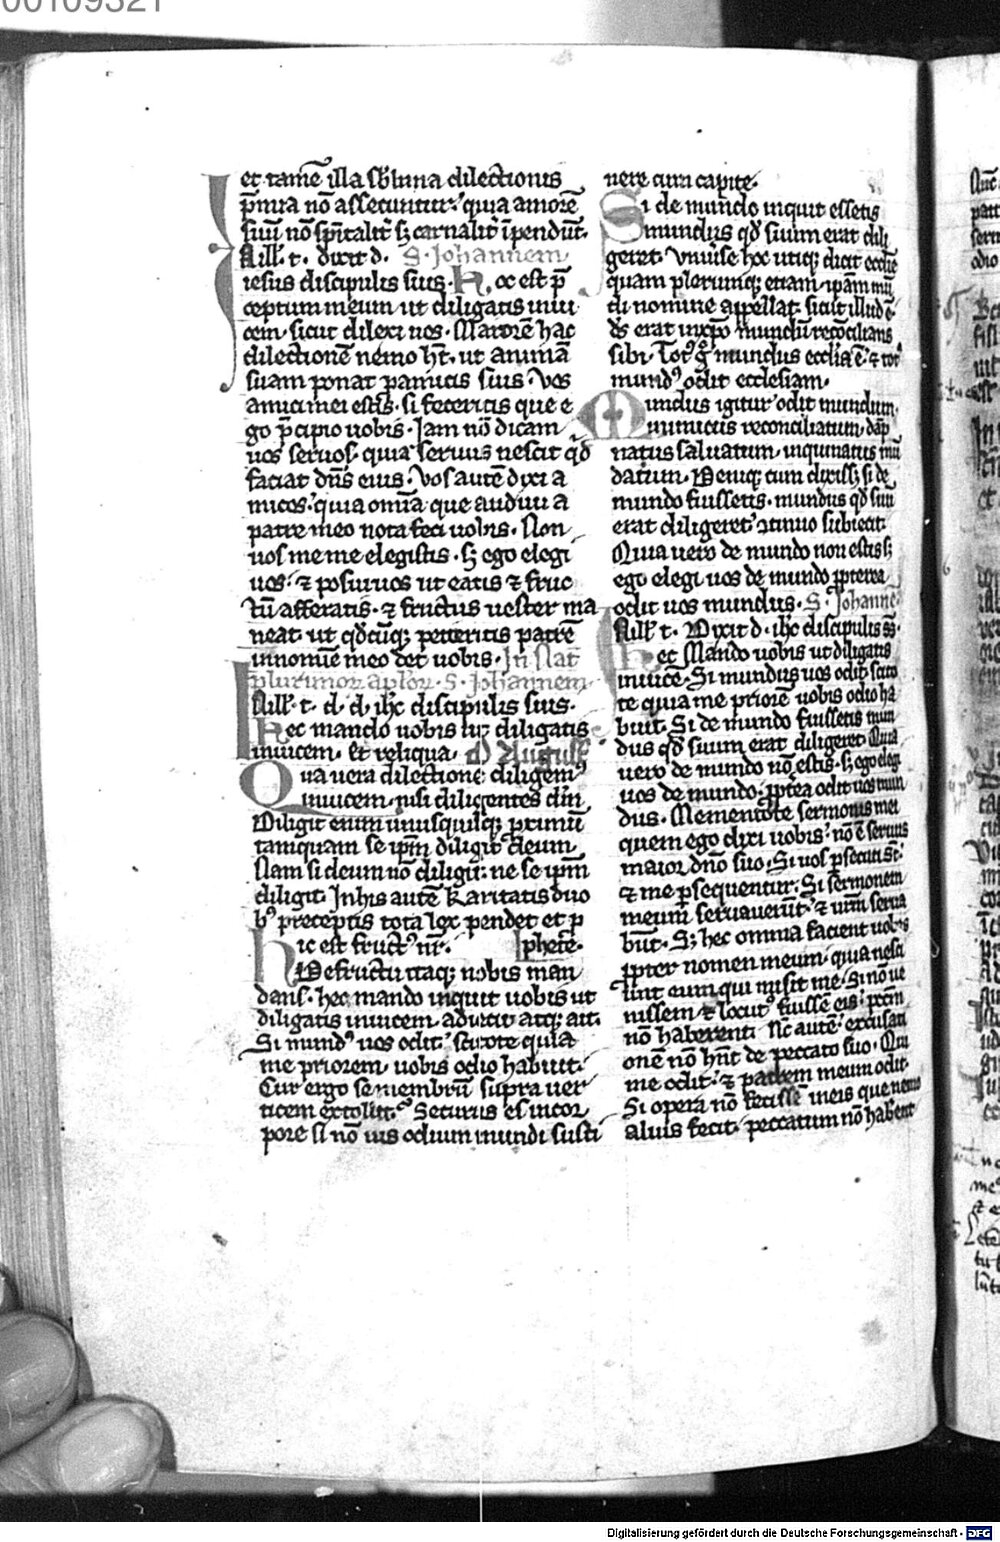 00109321
et tamē illa sb̄lima dilectionis
p̄mia nō assecuntur. quia amorē
suū nō sp̄italit̉ sꝫ carnalit̉ īpendūt.
In ill̉. t. dixit d. S. Johannem
iesus discipulis suis. Hoc est p̄
ceptum meum ut diligatis inui
cem. sicut dilexi uos. Maiorē hac
dilectionē nemo hꝫ. ut animā
suam ponat p amicis suis. Vos
amici mei estis. si feceritis que e
go p̄cipio uobis. Iam nō dicam
uos seruos. quia seruus nescit qd̄
faciat dn̄s eius. Vos autē dixi a
micos. quia om̄ia que audiui a
patre meo nota feci uobis. Non
uos me me elegistis. sꝫ ego elegi
uos. ⁊ posui uos ut eatis ⁊ fruc
tū afferatis. ⁊ fructus uester ma
neat. ut qd̄cūqꝫ petieritis patrē
in nomīe meo det uobis. In Nat̄
plurimoꝝ aploꝝ. S. Johannem
In ill̉. t. d. d. ih̄c discipulis suis.
hec mando uobis ut diligatis
inuicem. et reliqua. Augustī
Qua uera dilectione diligemꝰ
inuicem. nisi diligentes dm̄
Diligit enim unusquisqꝫ primū
tamquam se ip̄m diligit deum.
Nam si deum nō diligit. ne se ip̄m
diligit. In his autē karitatis duo
bꝰ preceptis tota lex pendet et p
hic est fructꝰ nr̄. phete.
De fructu itaqꝫ nobis man
dans. hec mando inquit uobis ut
diligatis inuicem. adiecit atqꝫ ait.
Si mundꝰ uos odit. scitote quia
me priorem uobis odio habuit.
Cur ergo se membrū supra uer
ticem extollit. Securus es in cor
pore si nō uis odium mundi susti
nere cum capite.
Si de mundo inquit essetis
mundus qd̄ suum erat dili
geret. Vniuerse hoc utiqꝫ dicit ecclīe
quam plerumqꝫ etiam ip̄am mū
di nomine appellat. sicut illud ē.
Ds̄ erat in xp̄o mundū reconcilians
sibi. Totꝰ gͦ mundus ecclīa ē. ⁊ totꝰ
mundꝰ odit ecclesiam.
Mundus igitur odit mundum.
inimicus reconciliatum. dāp
natus saluatum. inquinatus mū
datum. Deniqꝫ cum dixissꝫ si de
mundo fuissetis. mundus qd̄ suū
erat diligeret. ꝯtinuo subiecit.
Quia uero de mundo non estis sꝫ
ego elegi uos de mundo ꝓpterea
odit uos mundus. S. Johannē
In ill̉ t. Dixit d. ih̄c discipulis ss̄.
hec Mando uobis ut diligatis
inuicē. Si mundus uos odit scito
te quia me priorē uobis odio ha
buit. Si de mundo fuissetis mun
dus qd̄ suum erat diligeret. Quia
uero de mundo nō estis. sꝫ ego elegi
uos de mundo. ꝓpt̉ea odit uos mun
dus. Mementote sermonis mei
quem ego dixi uobis. nō ē seruus
maior dn̄o suo. Si uos ꝑsecuti st̄.
⁊ me ꝑsequentur. Si sermonem
meum seruauerūt. ⁊ ur̄m serua
būt. Sꝫ hec omnia facient uobis
ꝓpter nomen meum. quia nesci
unt eum qui misit me. Si nō ue
nissem ⁊ locutꝰ fuissē eis. pctm̄
nō haberent. Nc̄ autē excusati
onē nō hn̄t de peccato suo. Qui
me odit. ⁊ patrem meum odit.
Si opera nō fecissē in eis que nemo
alius fecit. peccatum nō haberent
Digitalisierung gefördert durch die Deutsche Forschungsgemeinschaft - DFG